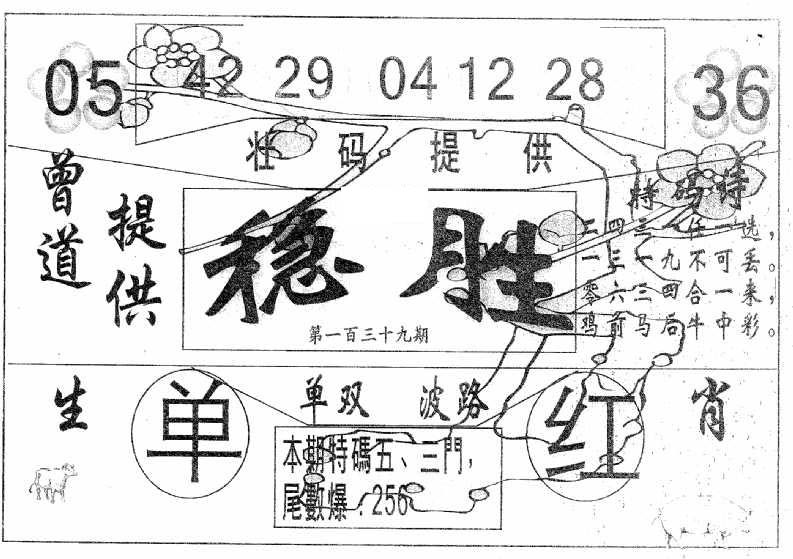 05 42 29 04 12 28 36
壮码提供
曾道
提供
稳胜
第一百三十九期
特码诗
二四三八任一选,
一三一九不可丢。
零六三四合一来,
鸡前马后牛中彩。
生
单
单双 波路
红
肖
本期特碼五、三門,
尾數爆:256